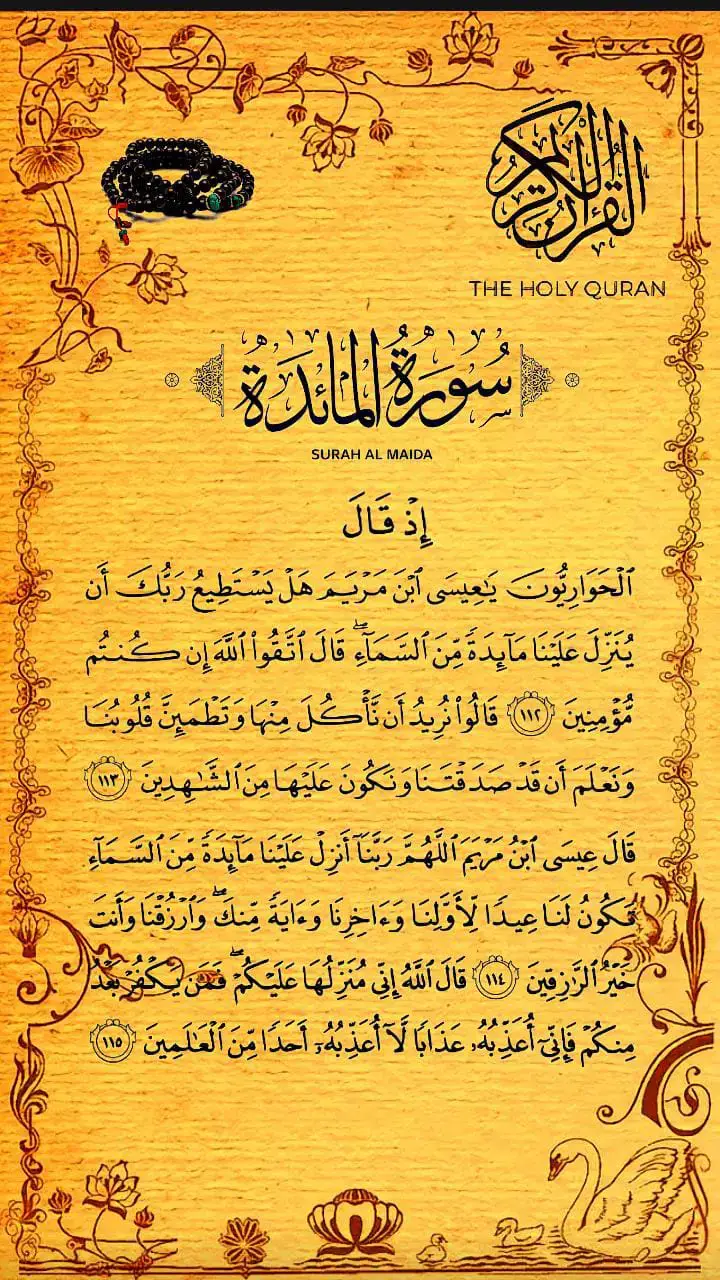 القرآن الكريم
THE HOLY QURAN
سُورَةُ المَائِدَةُ
SURAH AL MAIDA
إِذْ قَالَ
ٱلْحَوَارِيُّونَ يَٰعِيسَى ٱبْنَ مَرْيَمَ هَلْ يَسْتَطِيعُ رَبُّكَ أَن
يُنَزِّلَ عَلَيْنَا مَآئِدَةً مِّنَ ٱلسَّمَآءِۖ قَالَ ٱتَّقُوا۟ ٱللَّهَ إِن كُنتُم
مُّؤْمِنِينَ ١١٢ قَالُوا۟ نُرِيدُ أَن نَّأْكُلَ مِنْهَا وَتَطْمَئِنَّ قُلُوبُنَا
وَنَعْلَمَ أَن قَدْ صَدَقْتَنَا وَنَكُونَ عَلَيْهَا مِنَ ٱلشَّٰهِدِينَ ١١٣
قَالَ عِيسَى ٱبْنُ مَرْيَمَ ٱللَّهُمَّ رَبَّنَآ أَنزِلْ عَلَيْنَا مَآئِدَةً مِّنَ ٱلسَّمَآءِ
تَكُونُ لَنَا عِيدًا لِّأَوَّلِنَا وَءَاخِرِنَا وَءَايَةً مِّنكَۖ وَٱرْزُقْنَا وَأَنتَ
خَيْرُ ٱلرَّٰزِقِينَ ١١٤ قَالَ ٱللَّهُ إِنِّى مُنَزِّلُهَا عَلَيْكُمْۖ فَمَن يَكْفُرْ بَعْدُ
مِنكُمْ فَإِنِّىٓ أُعَذِّبُهُۥ عَذَابًا لَّآ أُعَذِّبُهُۥٓ أَحَدًا مِّنَ ٱلْعَٰلَمِينَ ١١٥